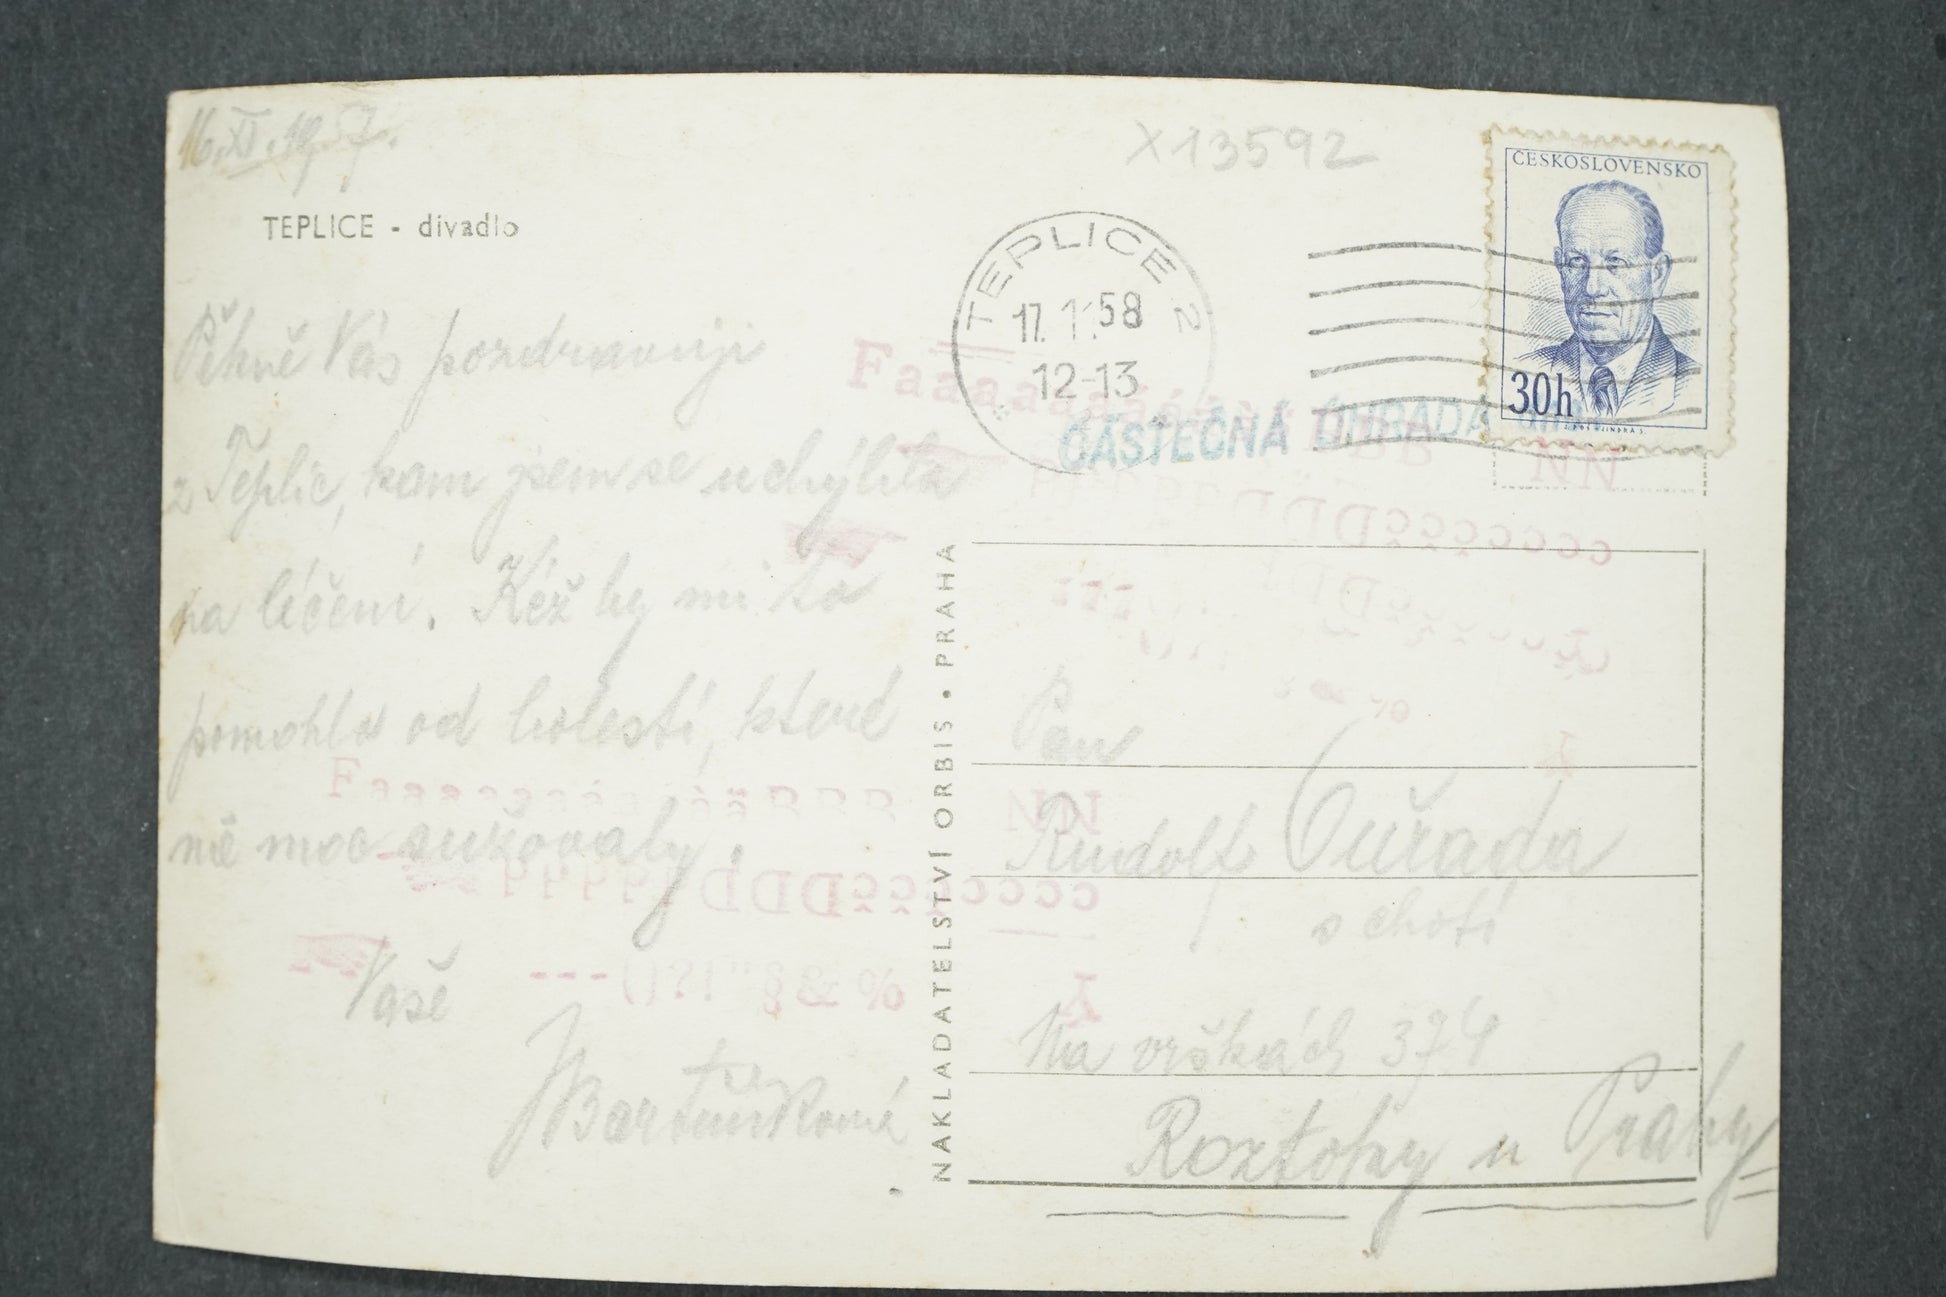 16. XI. 1957.
X13592
TEPLICE - divadlo
ČESKOSLOVENSKO
30h
TEPLICE 2
17. 11. 58
12-13
ČÁSTEČNÁ ÚHRADA
Pěkně Vás pozdravuji
z Teplic, kam jsem se uchýlila
na léčení. Kéž by mi to
pomohlo od bolestí, které
mě moc sužovaly.
Vaše
Bartůňková
NAKLADATELSTVÍ ORBIS • PRAHA
Pan
Rudolf Ouřada
s chotí
Na vrškách 374
Roztoky u Prahy
NN
cccccččDDD
NN
---()?!"§&%